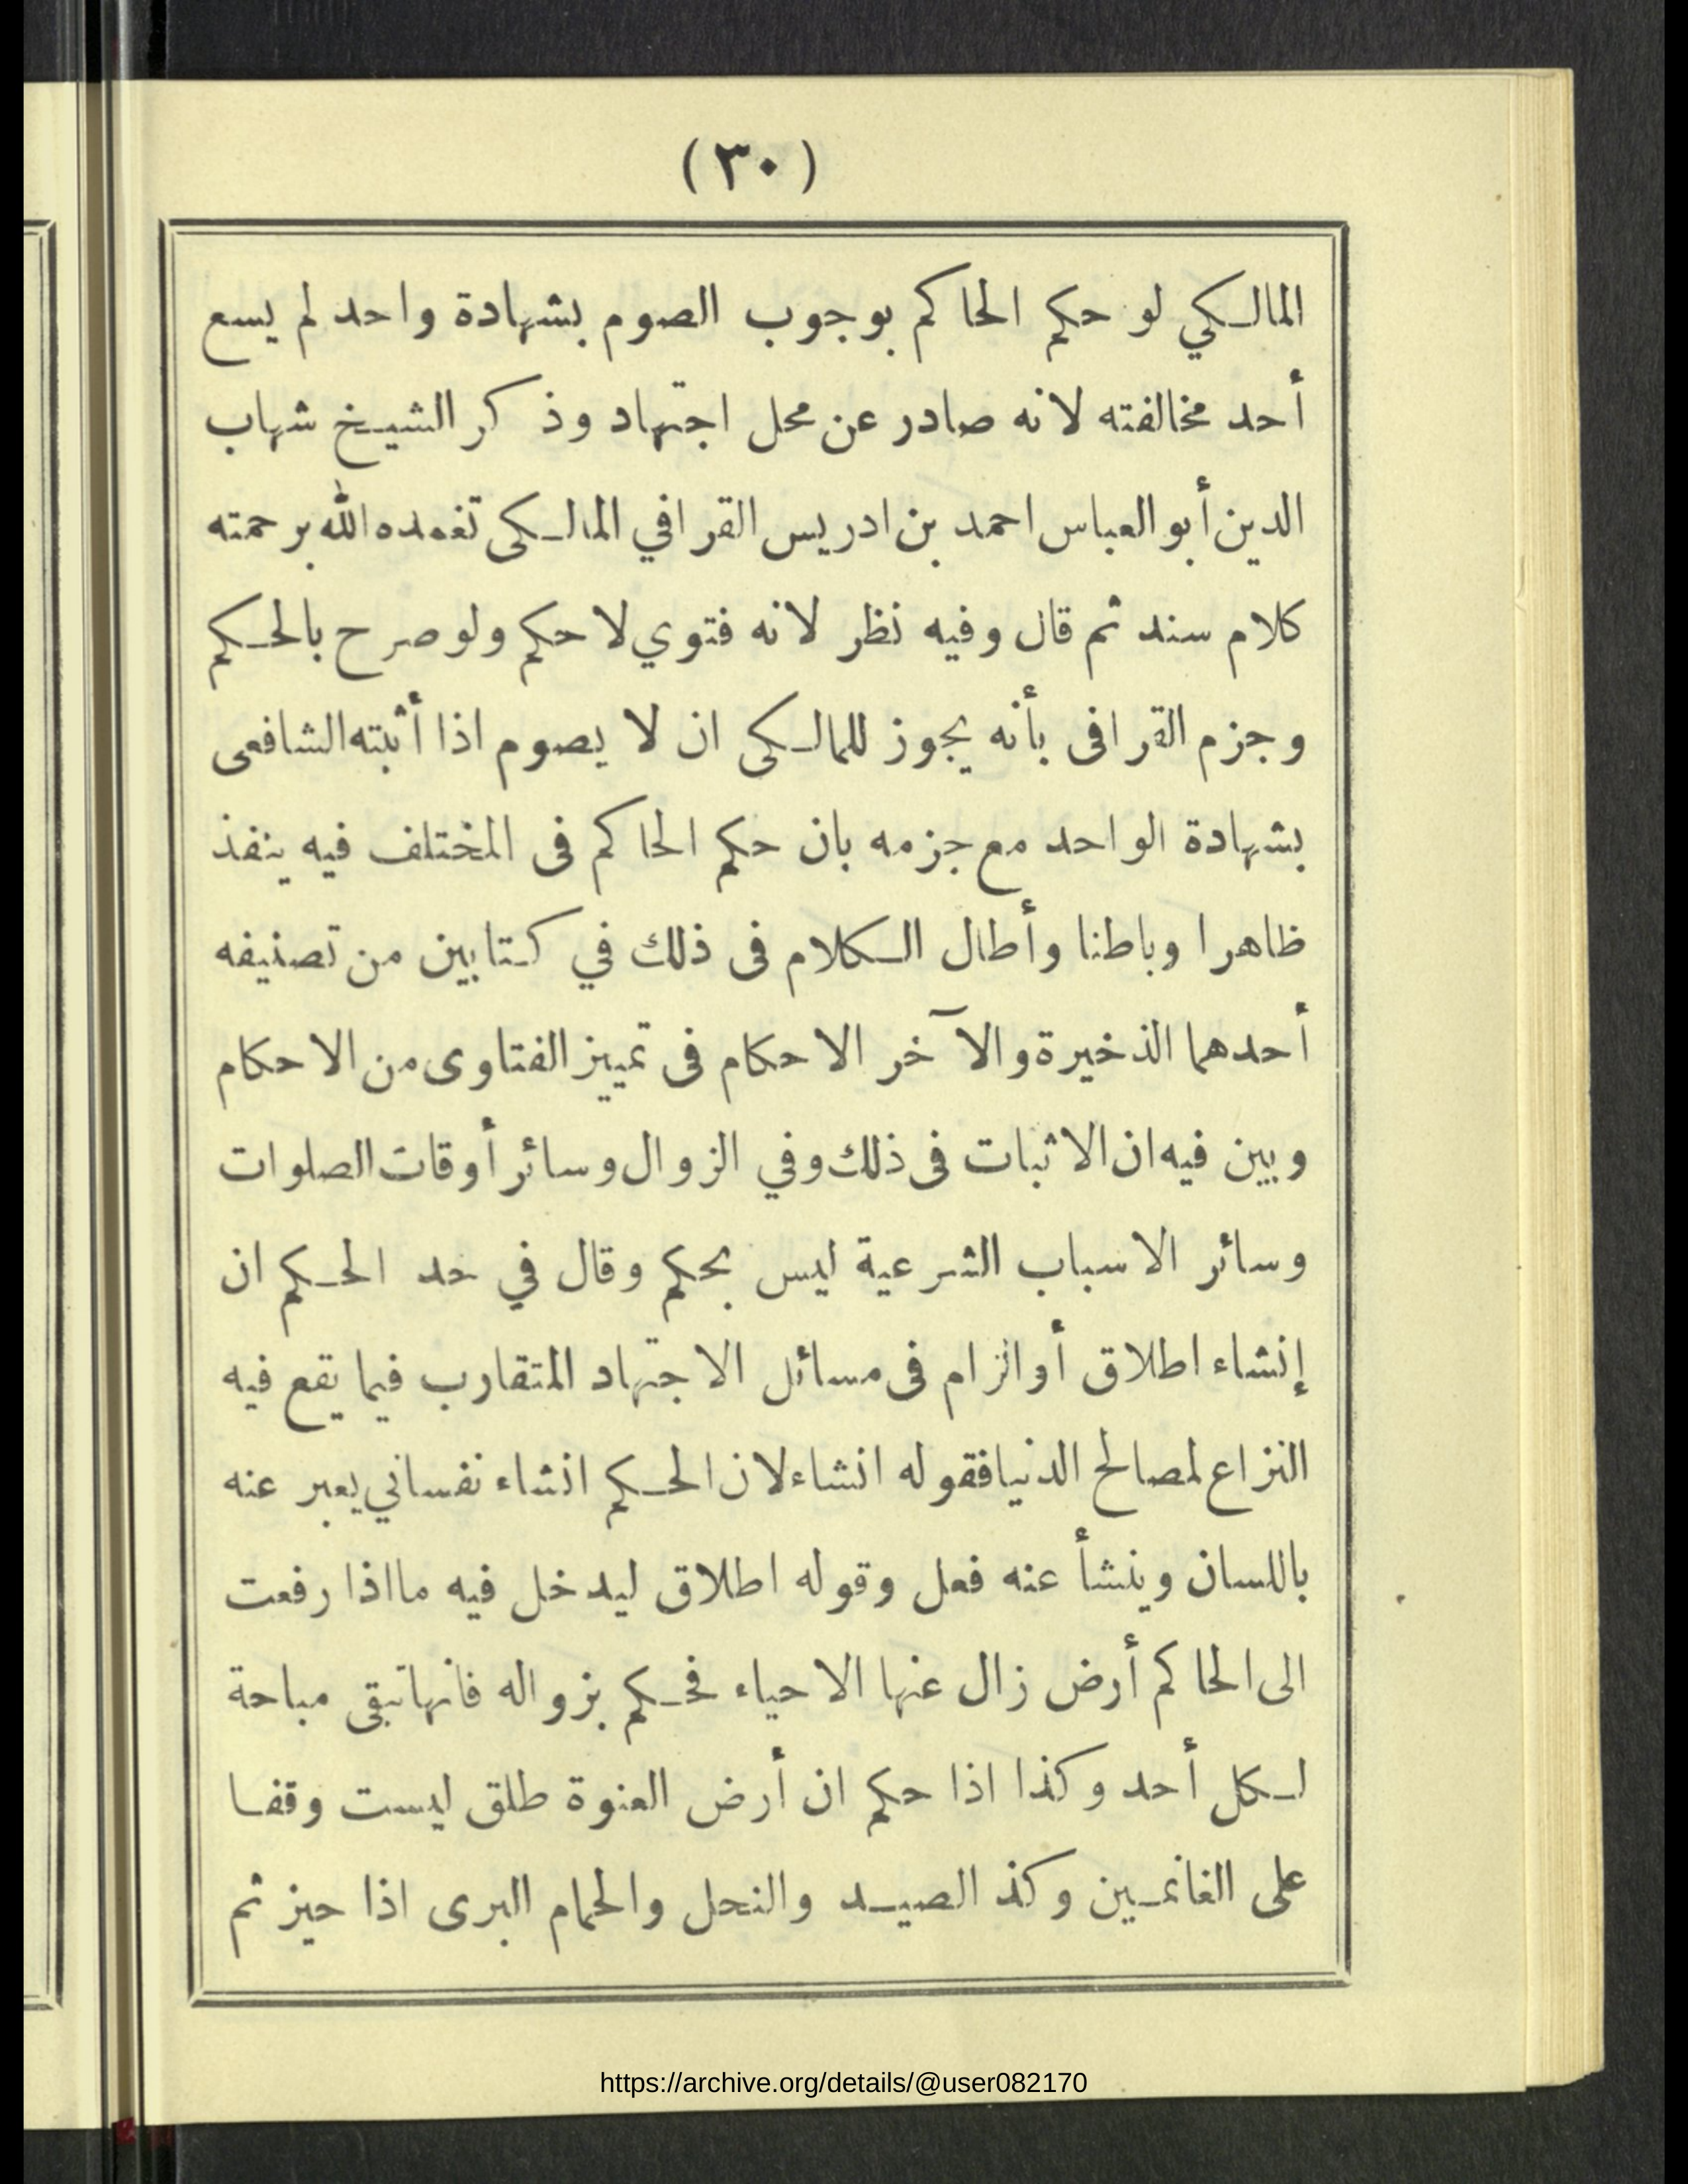 (٣٠)
المالكي لو حكم الحاكم بوجوب الصوم بشهادة واحد لم يسع
أحد مخالفته لانه صادر عن محل اجتهاد وذكر الشيخ شهاب
الدين أبو العباس احمد بن ادريس القرافي المالكى تغمده الله برحمته
كلام سند ثم قال وفيه نظر لانه فتوي لا حكم ولو صرح بالحكم
وجزم القرافى بأنه يجوز للمالكى ان لا يصوم اذا أثبته الشافعى
بشهادة الواحد مع جزمه بان حكم الحاكم فى المختلف فيه ينفذ
ظاهرا وباطنا وأطال الكلام فى ذلك في كتابين من تصنيفه
أحدهما الذخيرة والآخر الاحكام فى تمييز الفتاوى من الاحكام
وبين فيه ان الاثبات فى ذلك وفي الزوال وسائر أوقات الصلوات
وسائر الاسباب الشرعية ليس بحكم وقال في حد الحكم ان
إنشاء اطلاق أو الزام فى مسائل الاجتهاد المتقارب فيما يقع فيه
النزاع لمصالح الدنيا فقوله انشاء لان الحكم انشاء نفساني يعبر عنه
باللسان وينشأ عنه فعل وقوله اطلاق ليدخل فيه مااذا رفعت
الى الحاكم أرض زال عنها الاحياء فحكم بزواله فانها تبقى مباحة
لكل أحد وكذا اذا حكم ان أرض العنوة طلق ليست وقفا
على الغانمين وكذ الصيد والنحل والحمام البرى اذا حيز ثم
https://archive.org/details/@user082170